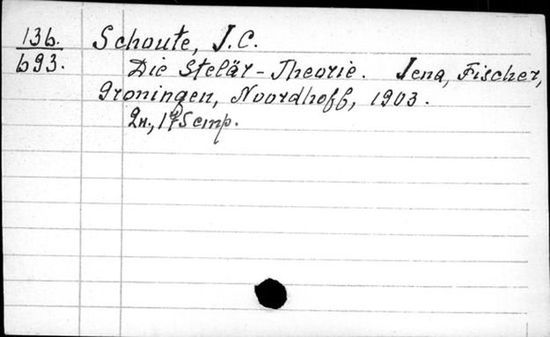 136.
693.
Schoute, J.C.
Die Stelär-Theorie. Jena, Fischer,
Groningen, Noordhoff, 1903.
2н., 175 стр.